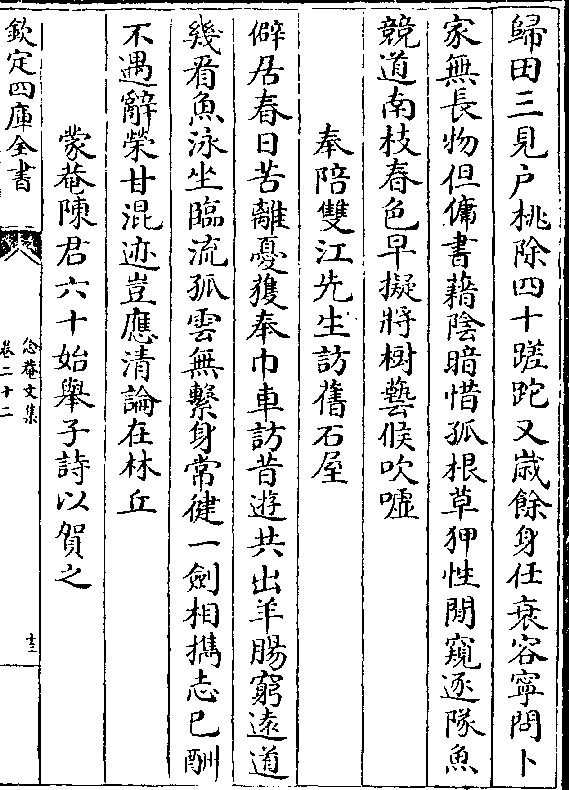 歸田三見户桃除四十蹉跎又歳餘身任衰容寧問卜
家無長物但傭書藉陰暗惜孤根草狎性閒窺逐隊魚
競道南枝春色早擬將樹藝候吹噓
奉陪雙江先生訪舊石屋
僻居春日苦離憂獲奉巾車訪昔遊共出羊腸窮遠道
幾看魚泳坐臨流孤雲無繫身常健一劍相携志已酬
不遇辭榮甘混迹豈應清論在林丘
蒙菴陳君六十始舉子詩以賀之
欽定四庫全書
念菴文集
卷二十二
十三